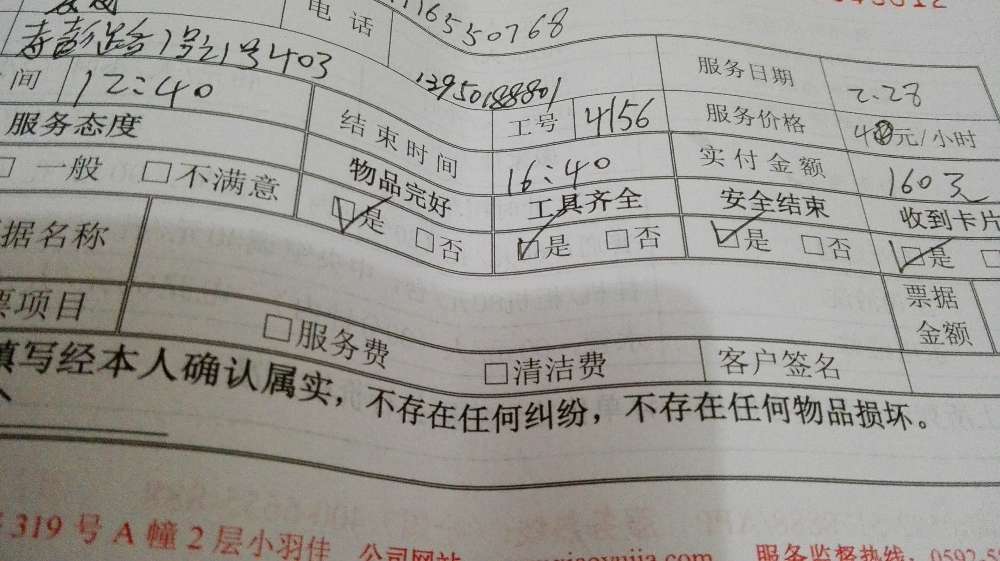 电话 116550768
寿彭路1号之1号403 13950188801
服务日期 2.28
间 12:40 结束时间 16:40 工号 4156 服务价格 40元/小时
实付金额 160元
服务态度 □一般 □不满意
物品完好 ☑是 □否
工具齐全 ☑是 □否
安全结束 ☑是 □否
收到卡片 ☑是 □
据名称 票据金额
票项目 □服务费 □清洁费 客户签名
填写经本人确认属实，不存在任何纠纷，不存在任何物品损坏。
319号A幢2层小羽佳 公司网站 服务监督热线：0592-